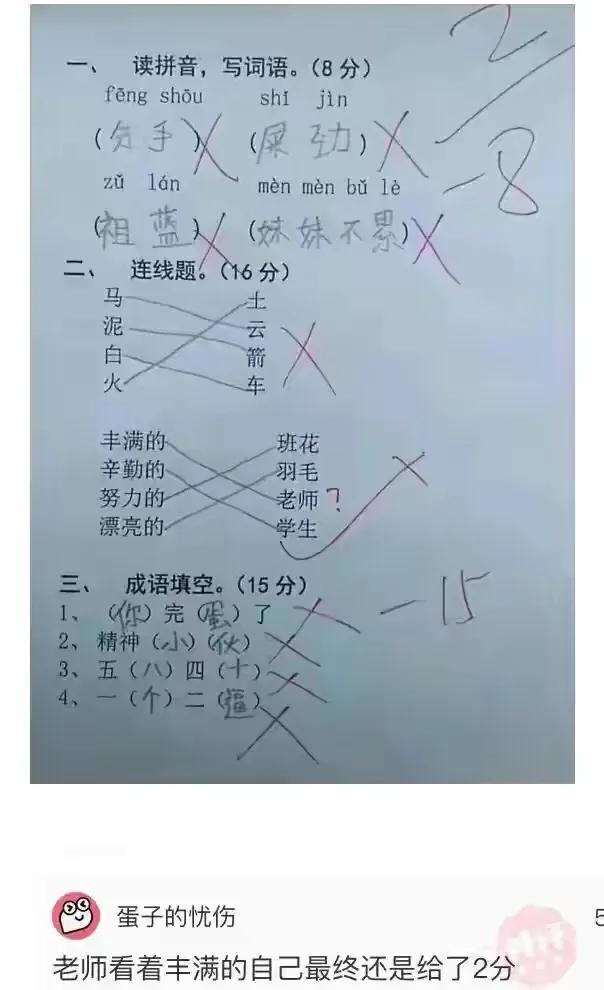 2
一、 读拼音，写词语。（8 分）
fēng shōu shǐ jìn
（分手） （屎 劲）
-8
zǔ lán mèn mèn bǔ lè
（祖 蓝） （妹 妹 不 累）
二、 连线题。（16 分）
马 土
泥 云
白 箭
火 车
丰满的 班花
辛勤的 羽毛
努力的 老师 ?
漂亮的 学生
三、 成语填空。（15 分）
1、（你）完（蛋）了
-15
2、精神（小）（伙）
3、五（八）四（十）
4、一（个）二（逼）
蛋子的忧伤
5
老师看着丰满的自己最终还是给了2分